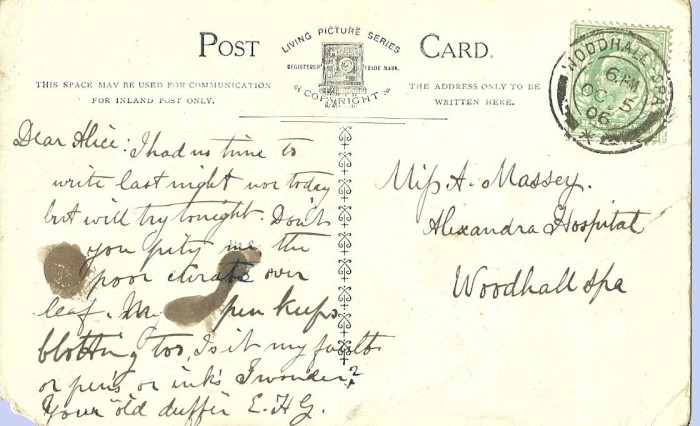 POST CARD.
LIVING PICTURE SERIES
REGISTERED TRADE MARK.
COPYRIGHT
THIS SPACE MAY BE USED FOR COMMUNICATION
FOR INLAND POST ONLY.
THE ADDRESS ONLY TO BE
WRITTEN HERE.
WOODHALL-SPA
6 PM
OC 5
06
Dear Alice: I had no time to
write last night nor today
but will try tonight. Don't
you pity me the
poor curate over
leaf. pen keeps
blotting too, Is it my fault
or pens or inks I wonder?
Your old duffer E.H.G.
Miss A. Massey.
Alexandra Hospital
Woodhall Spa